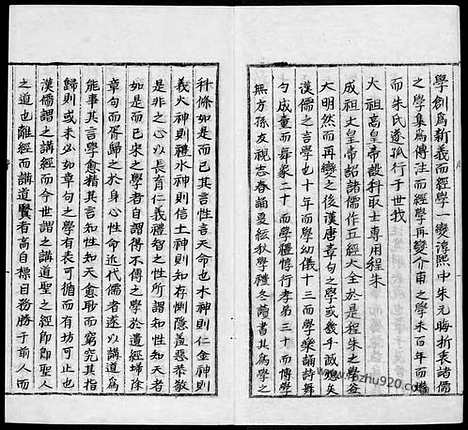 學創為新義而經學一變淳熙中朱元晦折衷諸儒
之學集為傳注而經學再變介甫之學未百年而熸
而朱氏遂孤行于世我
太祖高皇帝設科取士專用程朱
成祖文皇帝詔諸儒作五經大全於是程朱之學益
大明然而再變之後漢唐章句之學或幾乎滅熄矣
漢儒之言學也十年而學幼儀十三而學樂誦詩舞
勺成童而舞象二十而學禮惇行孝弟三十而博學
無方孫友視志春誦夏絃秋學禮冬讀書其為學之
科條如是而已其言性言天命也木神則仁金神則
義火神則禮水神則信土神則知存惻隱羞惡恭敬
是非之心以長育仁義禮智之性所謂知性知天者
如是而已宋之學者自謂得不傳之學於遺經掃除
章句而胥歸之於身心性命近代儒者遂以講道為
能事其言學愈精其言知性知天愈眇而窮究其指
歸則或未必如章句之學有表可循而有坊可止也
漢儒謂之講經而今世謂之講道聖人之經即聖人
之道也離經而講道賢者高自標目務勝于前人而